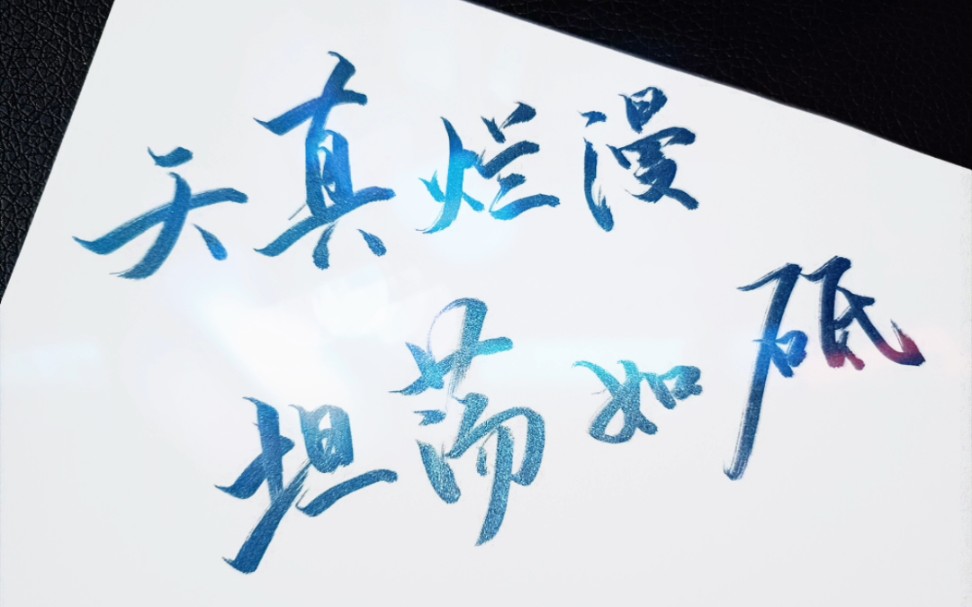 天真烂漫
坦荡如砥